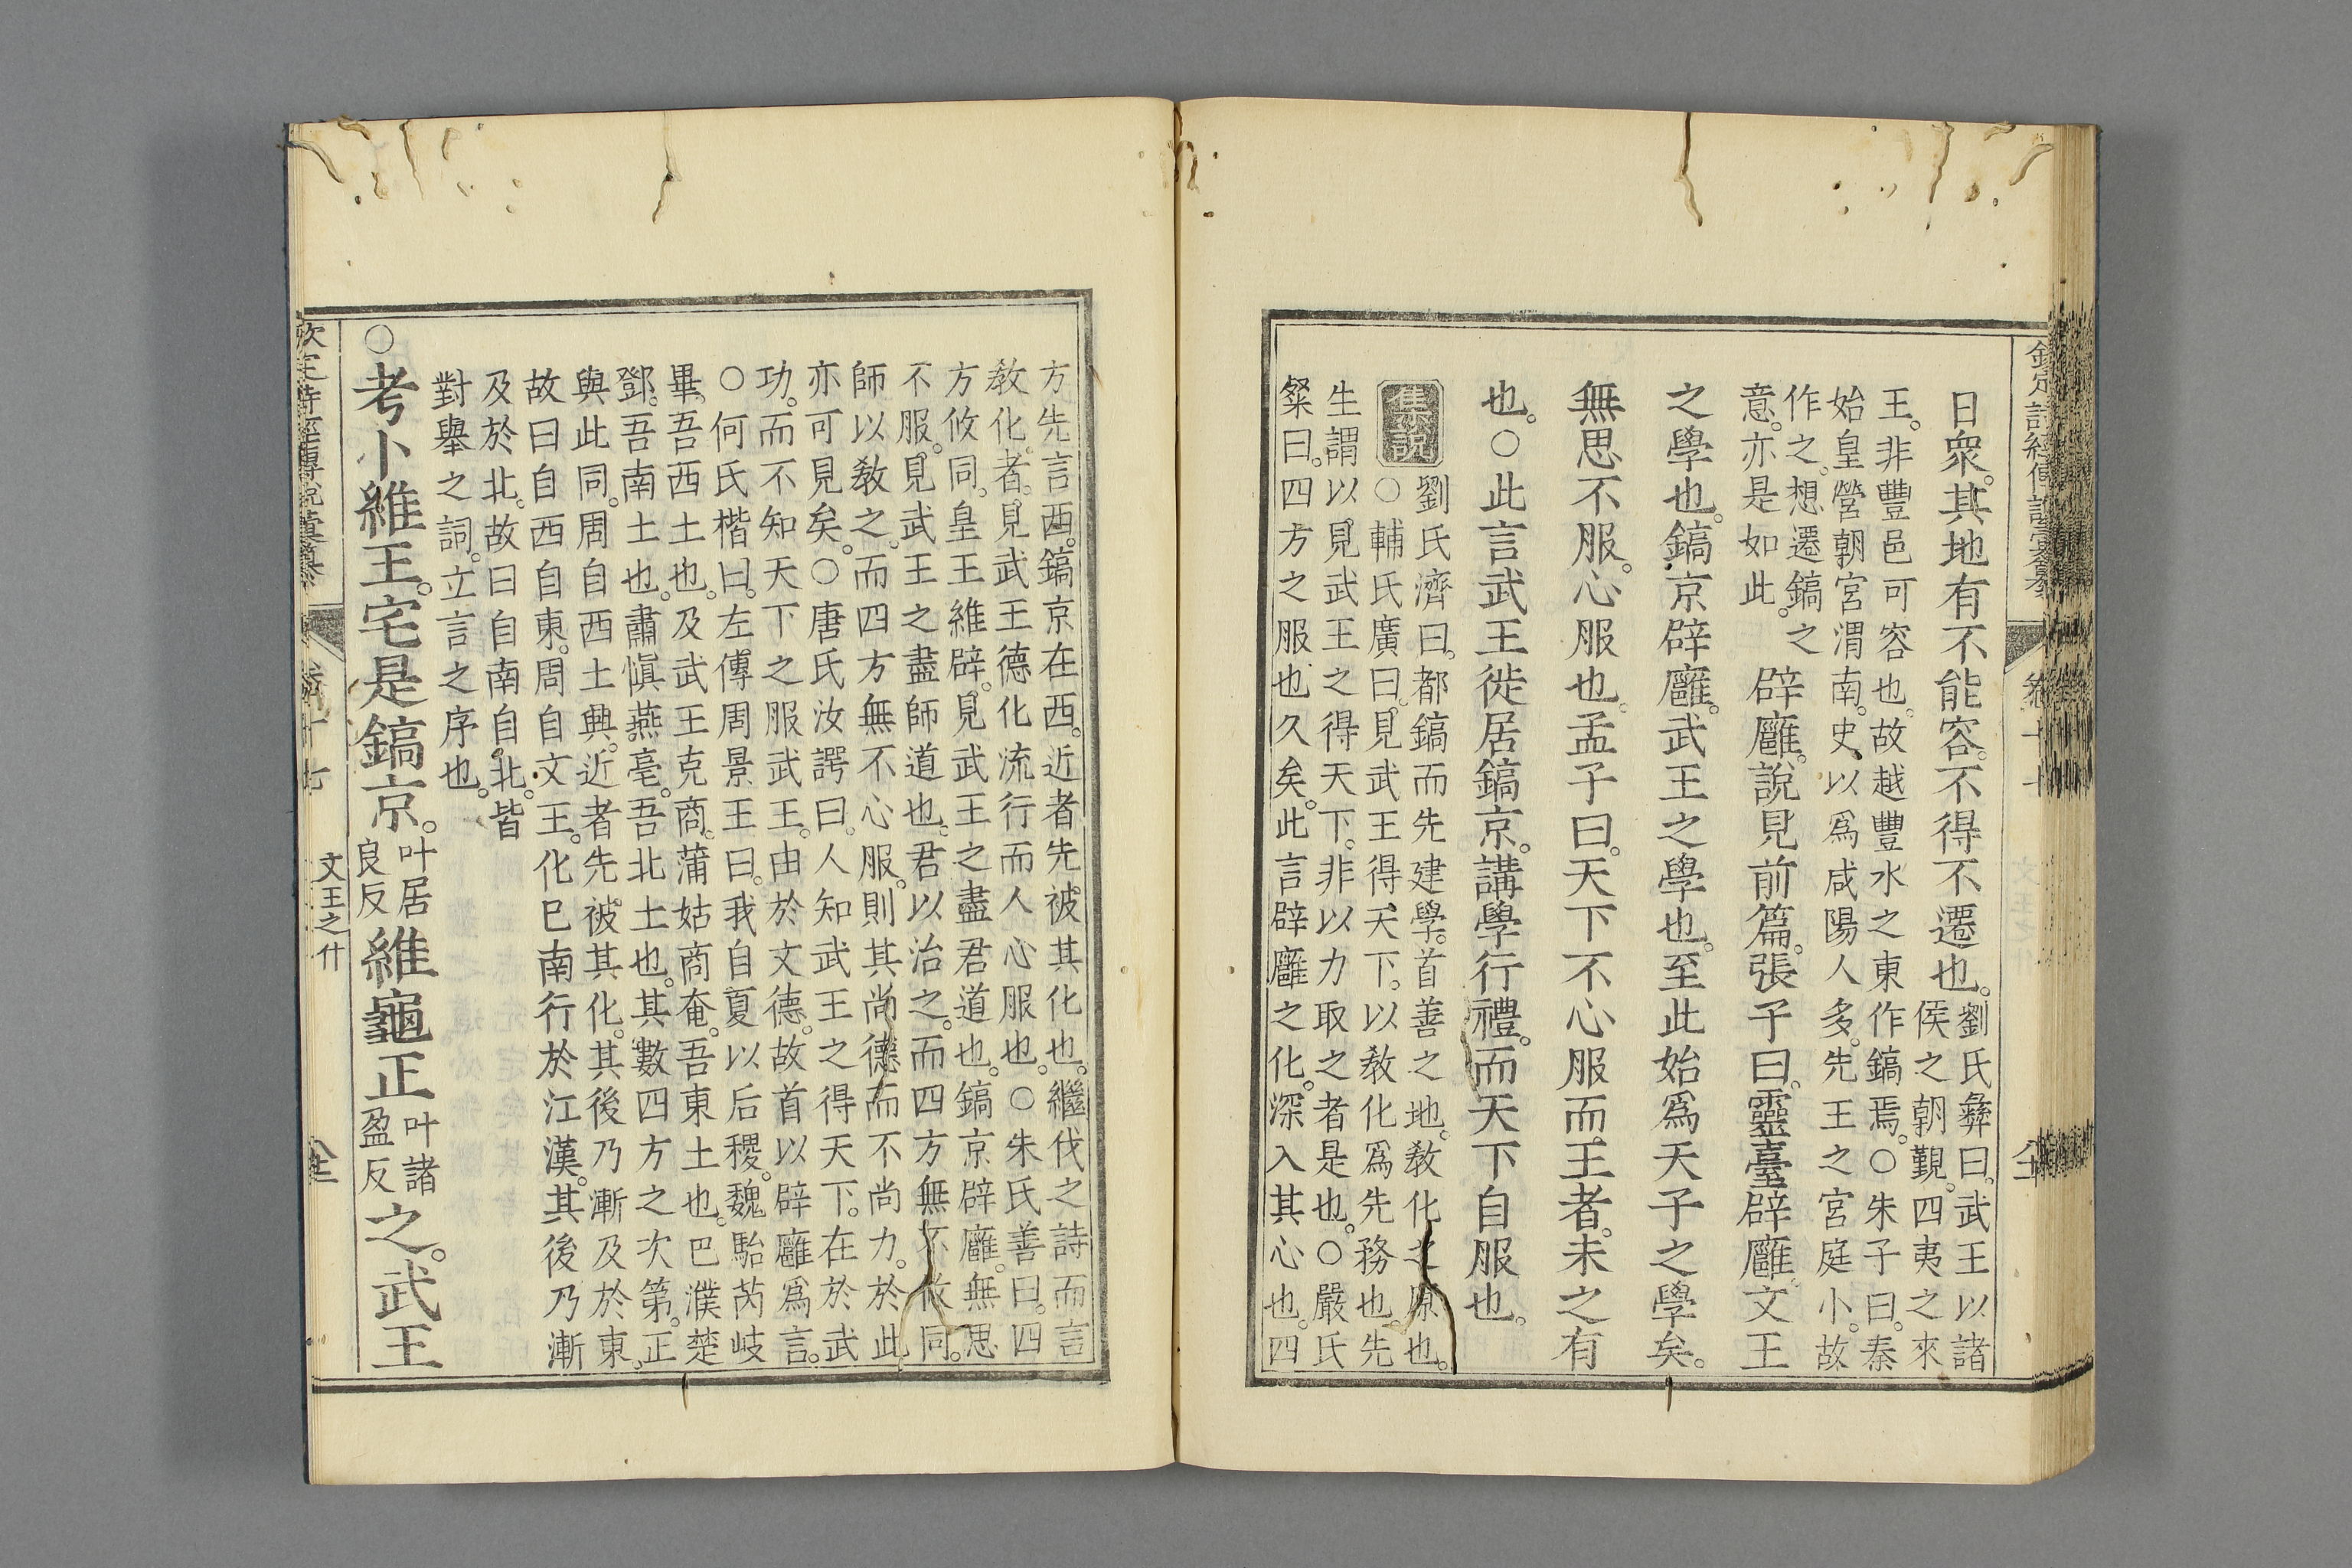 日衆。其地有不能容。不得不遷也。劉氏彝曰。武王以諸
侯之朝覲。四夷之來
王。非豐邑可容也。故越豐水之東作鎬焉。○朱子曰。秦
始皇營朝宮渭南。史以爲咸陽人多。先王之宮庭小。故
作之。想遷鎬之
意。亦是如此。
辟廱。說見前篇。張子曰。靈臺辟廱。文王
之學也。鎬京辟廱。武王之學也。至此始爲天子之學矣。
無思不服。心服也。孟子曰。天下不心服而王者。未之有
也。○此言武王徙居鎬京。講學行禮。而天下自服也。
集說
劉氏濟曰。都鎬而先建學。首善之地。敎化之原也。
○輔氏廣曰。見武王得天下。以敎化爲先務也。先
生謂以見武王之得天下。非以力取之者是也。○嚴氏
粲曰。四方之服也久矣。此言辟廱之化。深入其心也。四
方先言西。鎬京在西。近者先被其化也。繼伐之詩而言
敎化者。見武王德化流行而人心服也。○朱氏善曰。四
方攸同。皇王維辟。見武王之盡君道也。鎬京辟廱。無思
不服。見武王之盡師道也。君以治之。而四方無不攸同。
師以敎之。而四方無不心服。則其尚德而不尚力。於此
亦可見矣。○唐氏汝諤曰。人知武王之得天下。在於武
功。而不知天下之服武王。由於文德。故首以辟廱爲言。
○何氏楷曰。左傳周景王曰。我自夏以后稷。魏駘芮岐
畢。吾西土也。及武王克商。蒲姑商奄。吾東土也。巴濮楚
鄧。吾南土也。肅愼燕亳。吾北土也。其數四方之次第。正
與此同。周自西土興。近者先被其化。其後乃漸及於東。
故曰自西自東。周自文王。化已南行於江漢。其後乃漸
及於北。故曰自南自北。皆
對舉之詞。立言之序也。
○考卜維王。宅是鎬京。叶居
良反
維龜正叶諸
盈反
之。武王
欽定詩經傳說彙纂
卷十七
文王之什